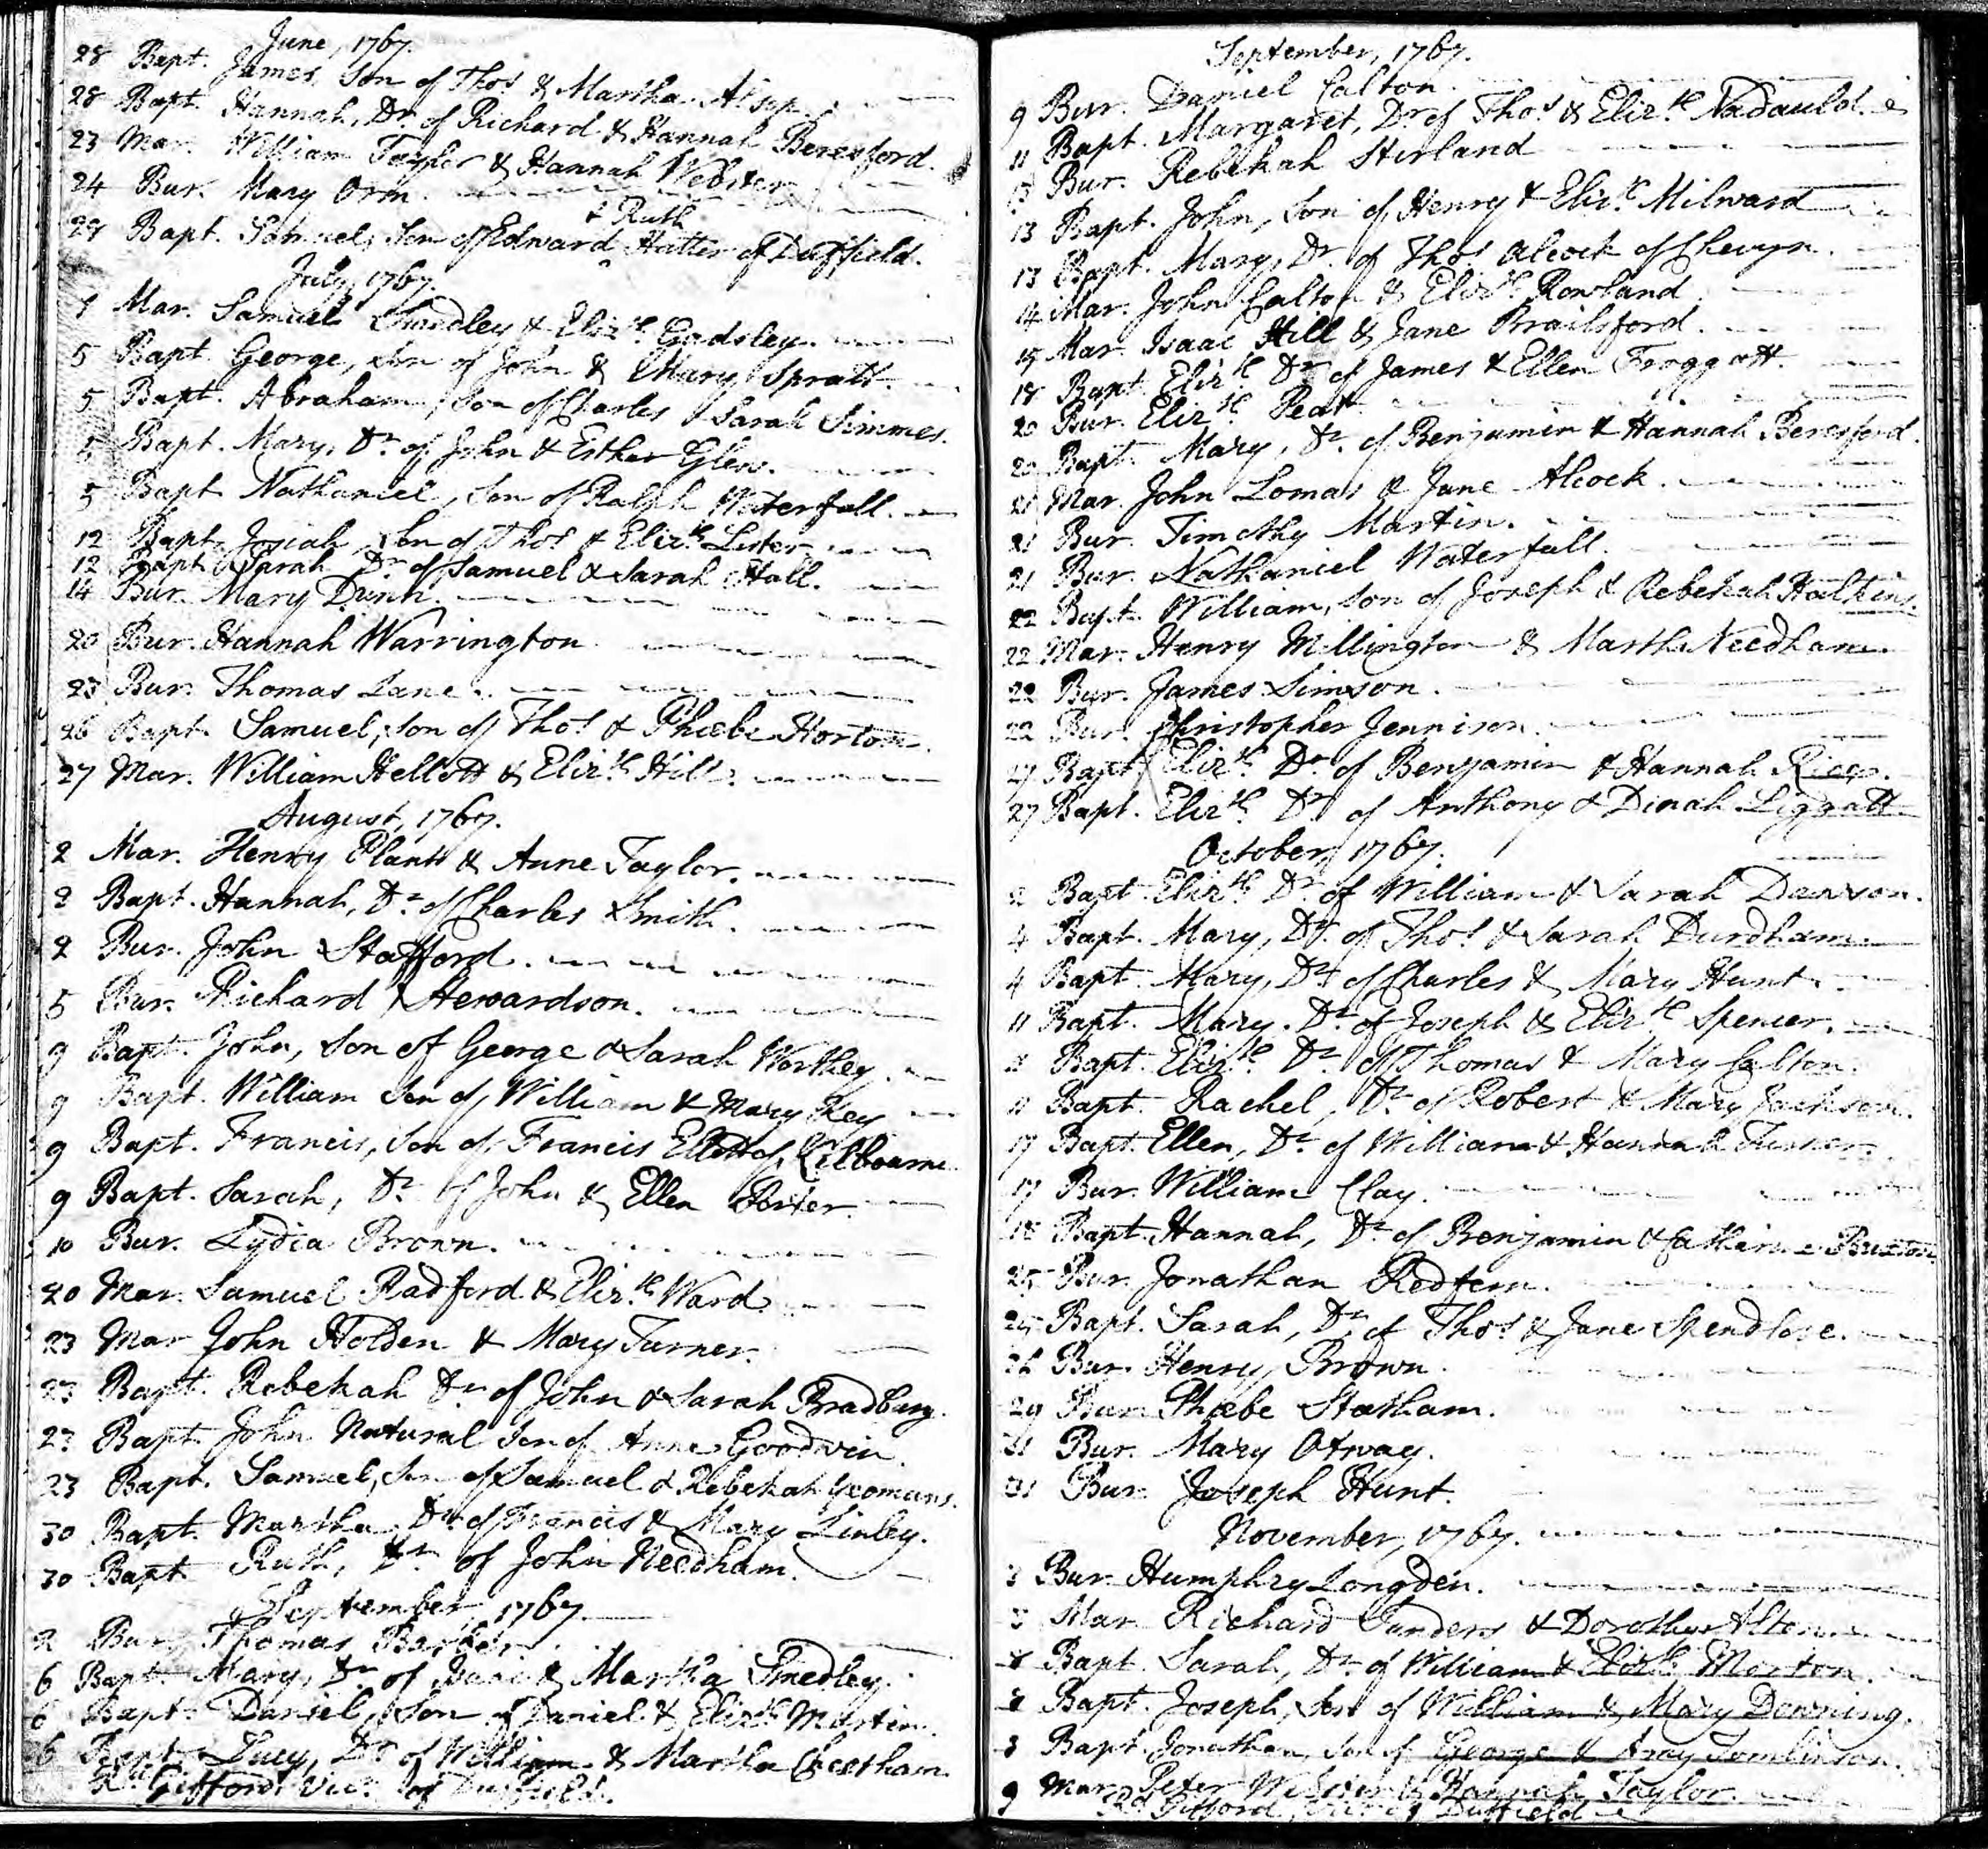 June, 1767.
28 Bapt. James, Son of Thos. & Martha Alsop.
28 Bapt. Hannah, Dr. of Richard & Hannah Beresford.
23 Mar. William Taylor & Hannah Webster
24 Bur. Mary Orm.
& Ruth
29 Bapt. Samuel, Son of Edward Hatter of Duffield.
July, 1767.
1 Mar. Samuel Smedley & Elizth. Gadsley.
5 Bapt. George, Son of John & Mary Spratt.
5 Bapt. Abraham, Son of Charles & Sarah Simmes.
5 Bapt. Mary, Dr. of John & Esther Glew.
5 Bapt. Nathaniel, Son of Ralph Waterfall.
12 Bapt. Josiah, Son of Thos. & Elizth. Lister
12 Bapt. Sarah Dr. of Samuel & Sarah Hall.
14 Bur. Mary Dunn.
20 Bur. Hannah Warrington
23 Bur. Thomas Lane.
26 Bapt. Samuel, Son of Thos. & Phœbe Horton.
27 Mar. William Hellott & Elizth. Hill.
August, 1767.
2 Mar. Henry Plants & Anne Taylor.
2 Bapt. Hannah, Dr. of Charles Smith.
2 Bur. John Stafford.
5 Bur. Richard Stewardson.
9 Bapt. John, Son of George & Sarah Worthey.
9 Bapt. William Son of William & Mary Key
9 Bapt. Francis, Son of Francis Ellott of Kilbourne
9 Bapt. Sarah, Dr. of John & Ellen Porter.
10 Bur. Lydia Brown.
20 Mar. Samuel Radford & Elizth. Ward
23 Mar John Holden & Mary Turner.
23 Bapt. Rebekah Dr. of John & Sarah Bradbury.
23 Bapt. John Natural Son of Anne Goodwin.
23 Bapt. Samuel, Son of Samuel & Rebekah Yeomans.
30 Bapt. Martha Dr. of Francis & Mary Linley.
30 Bapt Ruth, Dr. of John Needham.
September, 1767.
2 Bur. Thomas Barber.
6 Bapt. Mary, Dr. of Isaac & Martha Smedley.
6 Bapt. Daniel, Son of Daniel & Elizth. Martin.
6 Bapt. Lucy, Dr. of William & Martha Cheetham
Rd. Gifford, Vicr. of Duffield.
September, 1767.
9 Bur. Daniel Calton.
11 Bapt. Margaret, Dr. of Thos. & Elizth. Nadauld.
Bur. Rebekah Stirland
13 Bapt. John, Son of Henry & Elizth. Milward
13 Bapt. Mary, Dr. of Thos. Alcock of Chevyn.
14 Mar. John Calton & Elizth. Rowland
15 Mar. Isaac Hill & Jane Brailsford.
18 Bapt. Elizth. Dr. of James & Ellen Froggott.
20 Bur. Elizth. Peat
20 Bapt. Mary, Dr. of Benjamin & Hannah Beresford.
21 Mar. John Lomas & Jane Alcock.
21 Bur. Timothy Martin.
21 Bur. Nathaniel Waterfall.
22 Bapt. William, Son of Joseph & Rebekah Hulkins.
22 Mar. Henry Millington & Marth. Needham.
22 Bur. James Simson.
22 Bur. Christopher Jennison
27 Bapt. Elizth. Dr. of Benjamin & Hannah
27 Bapt. Elizth. Dr. of Anthony & Dinah Liggatt
October, 1767.
2 Bapt. Elizth. Dr. of William & Sarah Dawson.
4 Bapt. Mary, Dr. of Thos. & Sarah Durdham
4 Bapt. Mary, Dr. of Charles & Mary Hunt
11 Bapt. Mary. Dr. of Joseph & Elizth. Spencer.
Bapt. Elizth. Dr. of Thomas & Mary Calton.
11 Bapt. Rachel, Dr. of Robert & Mary Jackson.
17 Bapt. Ellen, Dr. of William & Hannah Turner.
17 Bur. William Clay.
18 Bapt. Hannah, Dr. of Benjamin & Catharine Buxton
25 Bur. Jonathan Redfern.
25 Bapt. Sarah, Dr. of Thos. & Jane Spendlove.
26 Bur. Henry Brown.
29 Bur. Phœbe Statham.
31 Bur. Mary Otway.
31 Bur. Joseph Hunt.
November, 1767.
3 Bur. Humphry Longden.
3 Mar. Richard Sunders & Dorothy Alton
8 Bapt. Sarah, Dr. of William & Elizth. Morton.
8 Bapt. Joseph, Son of William & Mary Downing.
8 Bapt. Jonathan, Son of George & Amy Tomlinson.
9 Mar. Peter Webster & Hannah Taylor.
Rd. Gifford, Vicr. of Duffield